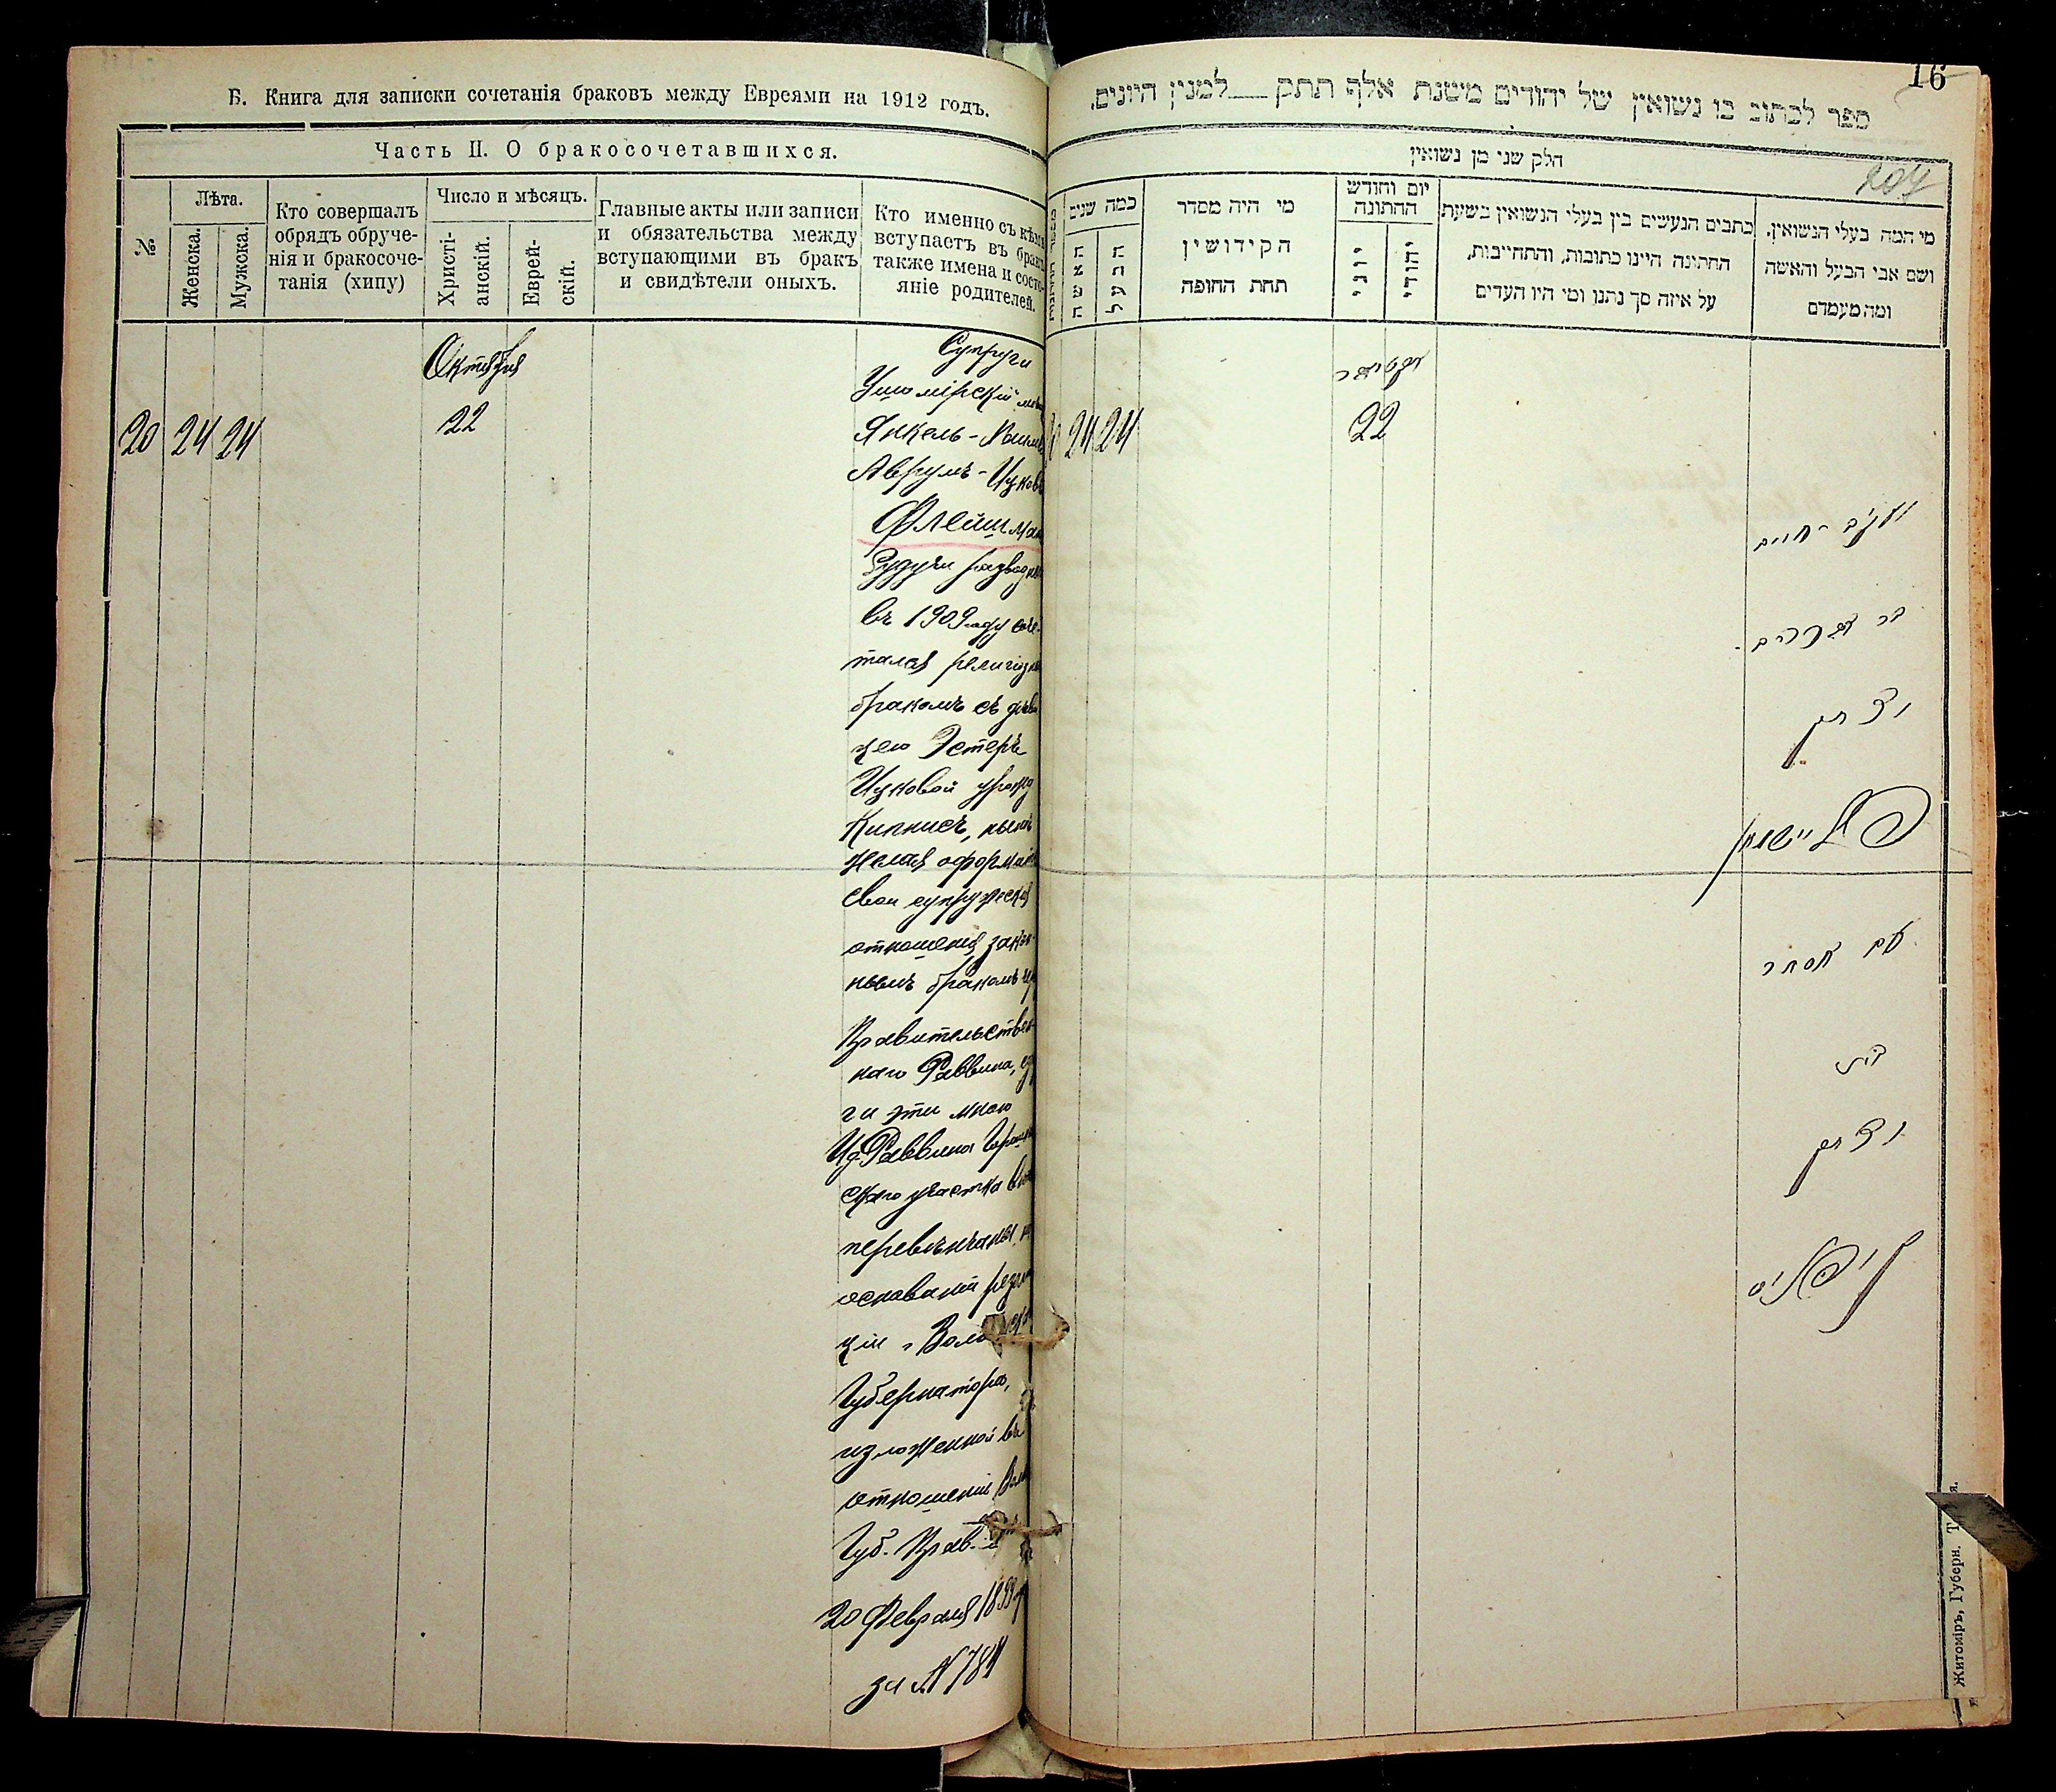 Б. Книга для записки сочетанія браковъ между Евреями на 1912 годъ.
Часть II. О бракосочетавшихся.
№
Лѣта.
Женска.
Мужска.
Кто совершалъ
обрядъ обруче-
нія и бракосоче-
танія (хипу)
Число и мѣсяцъ.
Христі-
анскій.
Еврей-
скій.
Главные акты или записи
и обязательства между
вступающими въ бракъ
и свидѣтели оныхъ.
Кто именно съ кѣмъ
вступаетъ въ бракъ
также имена и состо-
яніе родителей.
Октября
20 24 24
22
Супруги
Ушомірскій
Янкель-
Аврумъ-Ицков
Флейшман
Будучи разведен
въ 1909 году соче-
тался религіозн
бракомъ съ дѣви
цею Эстеръ
Ицковой урожд
Кипнисъ, нынѣ
желая оформить
свои супружескія
отношенія закон-
нымъ бракомъ
Правительствен-
наго Раввина,
ги эти мною
И.д. Раввина
скаго участка
перевѣнчаны н
основаніи резолю
ціи г. Волынск
Губернатора,
изложенной въ
отношеніи Вол
Губ. Прав.
20 Февраля
за №
16
ספר לכתוב בו נשואין של יהודים משנת אלף תתק למנין היונים.
חלק שני מן נשואין
כמה שנים
האשה
הבעל
מי היה מסדר
הקידושין
תחת החופה
יום וחודש
החתונה
יוני
יהודי
כתבים הנעשים בין בעלי הנשואין בשעת
החתונה היינו כתובות, והתחייבות,
על איזה סך נתנו ומי היו העדים
מי המה בעלי הנשואין,
ושם אבי הבעל והאשה
ומה מעמדם
אקטיאבר
24 24
22
יעקב-חיים
בר אברהם-
יצחק
פליישמאן
עם אסתר
בת
יצחק
קיפניס
Житоміръ, Губерн. Т